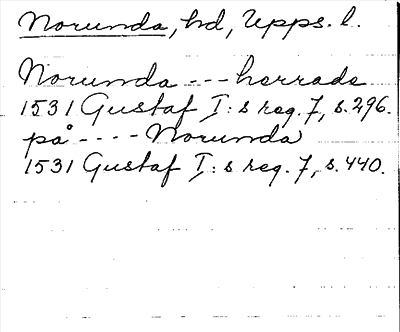 Norunda, hd, Upps. l.
Norunda --- herrade
1531 Gustaf I:s reg. 7, s. 296.
på ---- Norunda
1531 Gustaf I:s reg. 7, s. 440.